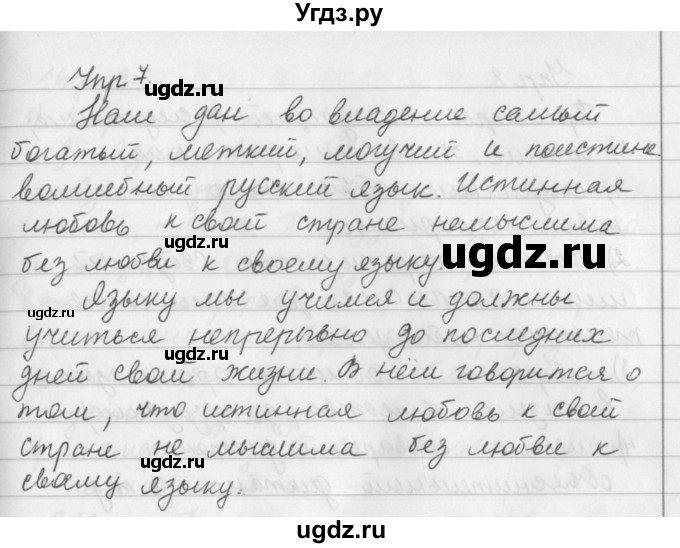 Угдз.ру
Упр 7.
Нам дан во владение самый
богатый, меткий, могучий и поистине
волшебный русский язык. Истинная
любовь к свой стране немыслима
без любви к своему языку.
Языку мы учимся и должны
учиться непрерывно до последних
дней свой жизни. В нём говорится о
том, что истинная любовь к свой
стране не мыслима без любви к
своему языку.
ugdz.ru
ugdz.ru
ugdz.ru
ugdz.ru
ugdz.ru
ugdz.ru
ugdz.ru
ugdz.ru